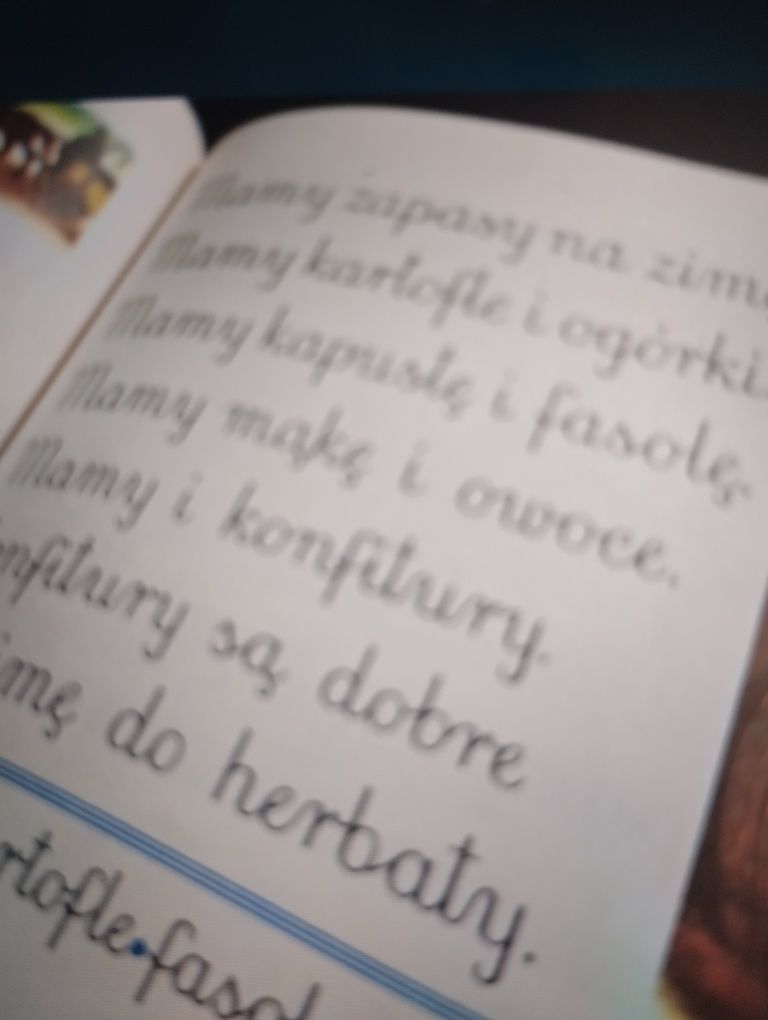 Mamy zapasy na zimę
Mamy kartofle i ogórki.
Mamy kapustę i fasolę.
Mamy mąkę i owoce.
Mamy i konfitury.
onfitury są dobre
imę do herbaty.
rtofle·fasol